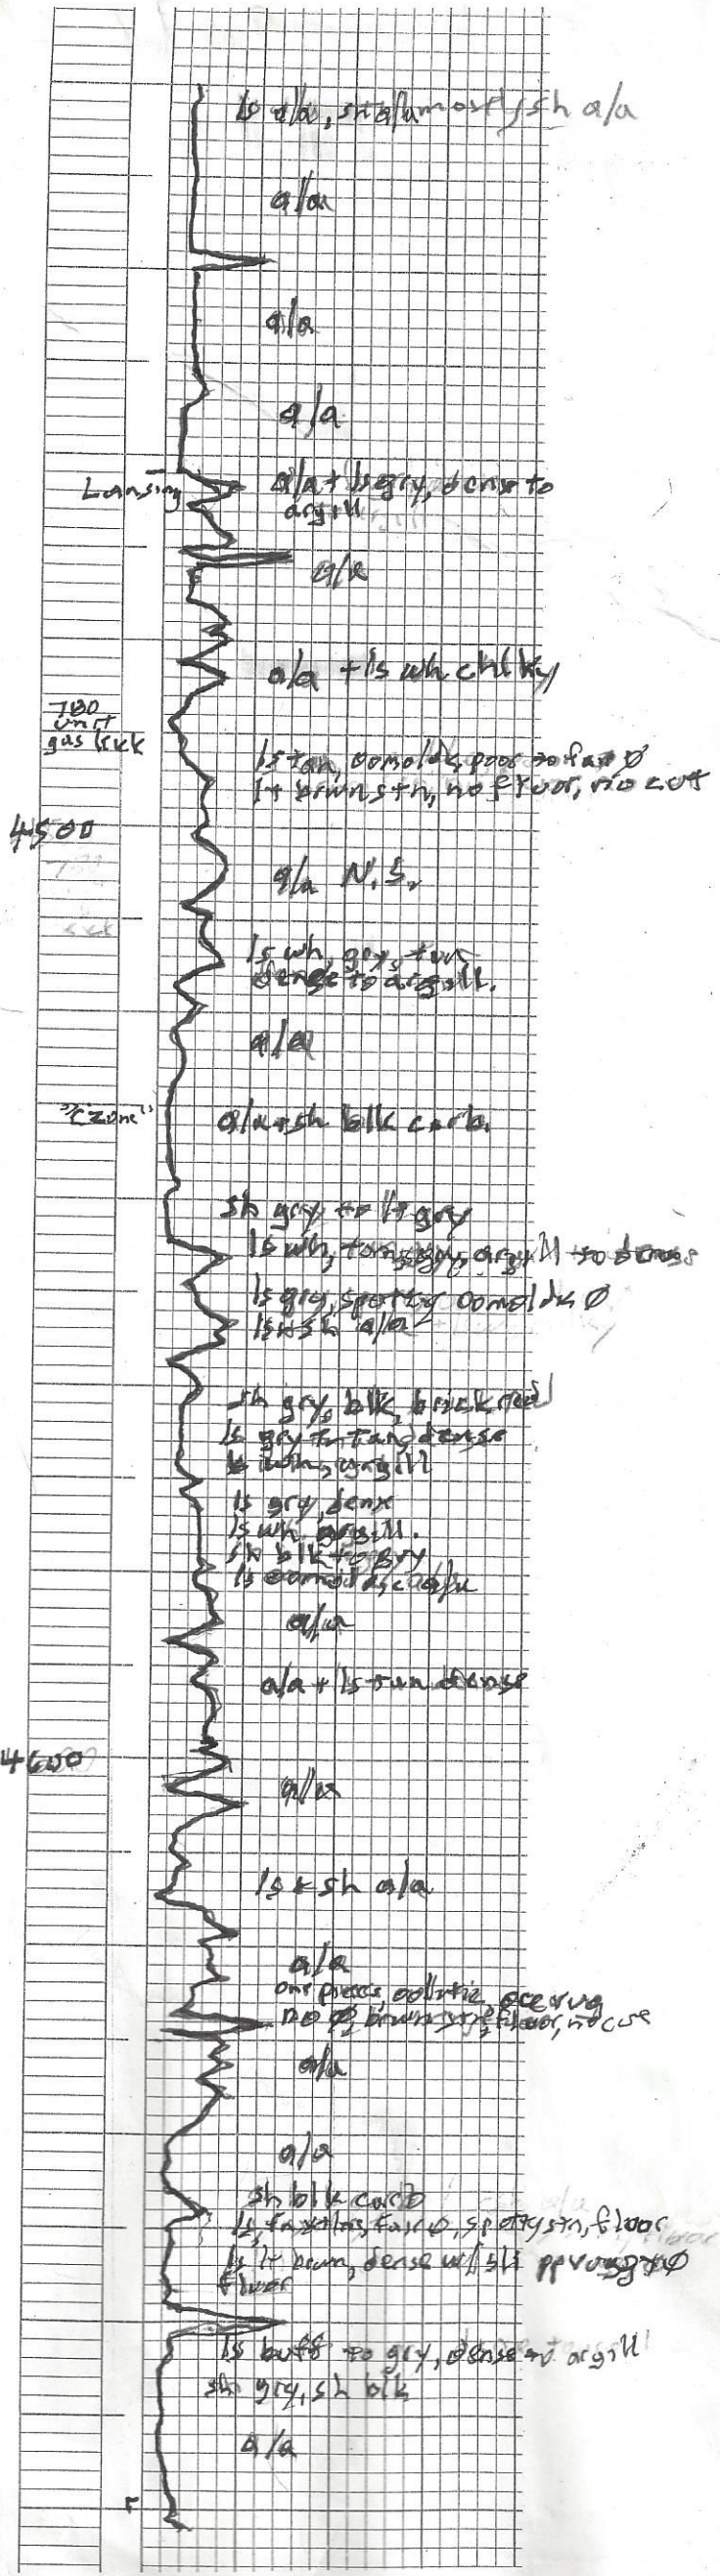 ls a/a, sh a/a mostly sh a/a
a/a
a/a
a/a
Lansing
a/a + ls gry, dense to
argill
a/a
a/a + ls wh chlky
780
unit
gas kick
ls tan, oomoldic, poor to fair Ø
lt brwn stn, no fluor, no cut
4500
a/a N.S.
ls wh, gry, tan
dense to argill.
a/a
"C zone"
a/a + sh blk carb.
sh gry to lt gry
ls wh, tan, gry, argill to dense
ls gry, spotty oomoldic Ø
ls + sh a/a
sh gry, blk, brick red
ls gry to tan, dense
ls wh, argill
ls gry, dense
ls wh argill.
sh blk to gry
ls oomoldic, a/a
a/a
a/a + ls tan dense
4600
a/a
ls + sh a/a
a/a
one piece, oolitic, occ vug
no Ø, brwn stn, fluor, no cut
a/a
a/a
sh blk carb
ls, fair Ø, spotty stn, fluor
ls lt brwn, dense w/ sli pp vuggy Ø
fluor
ls buff to gry, dense to argill
sh gry, sh blk
a/a